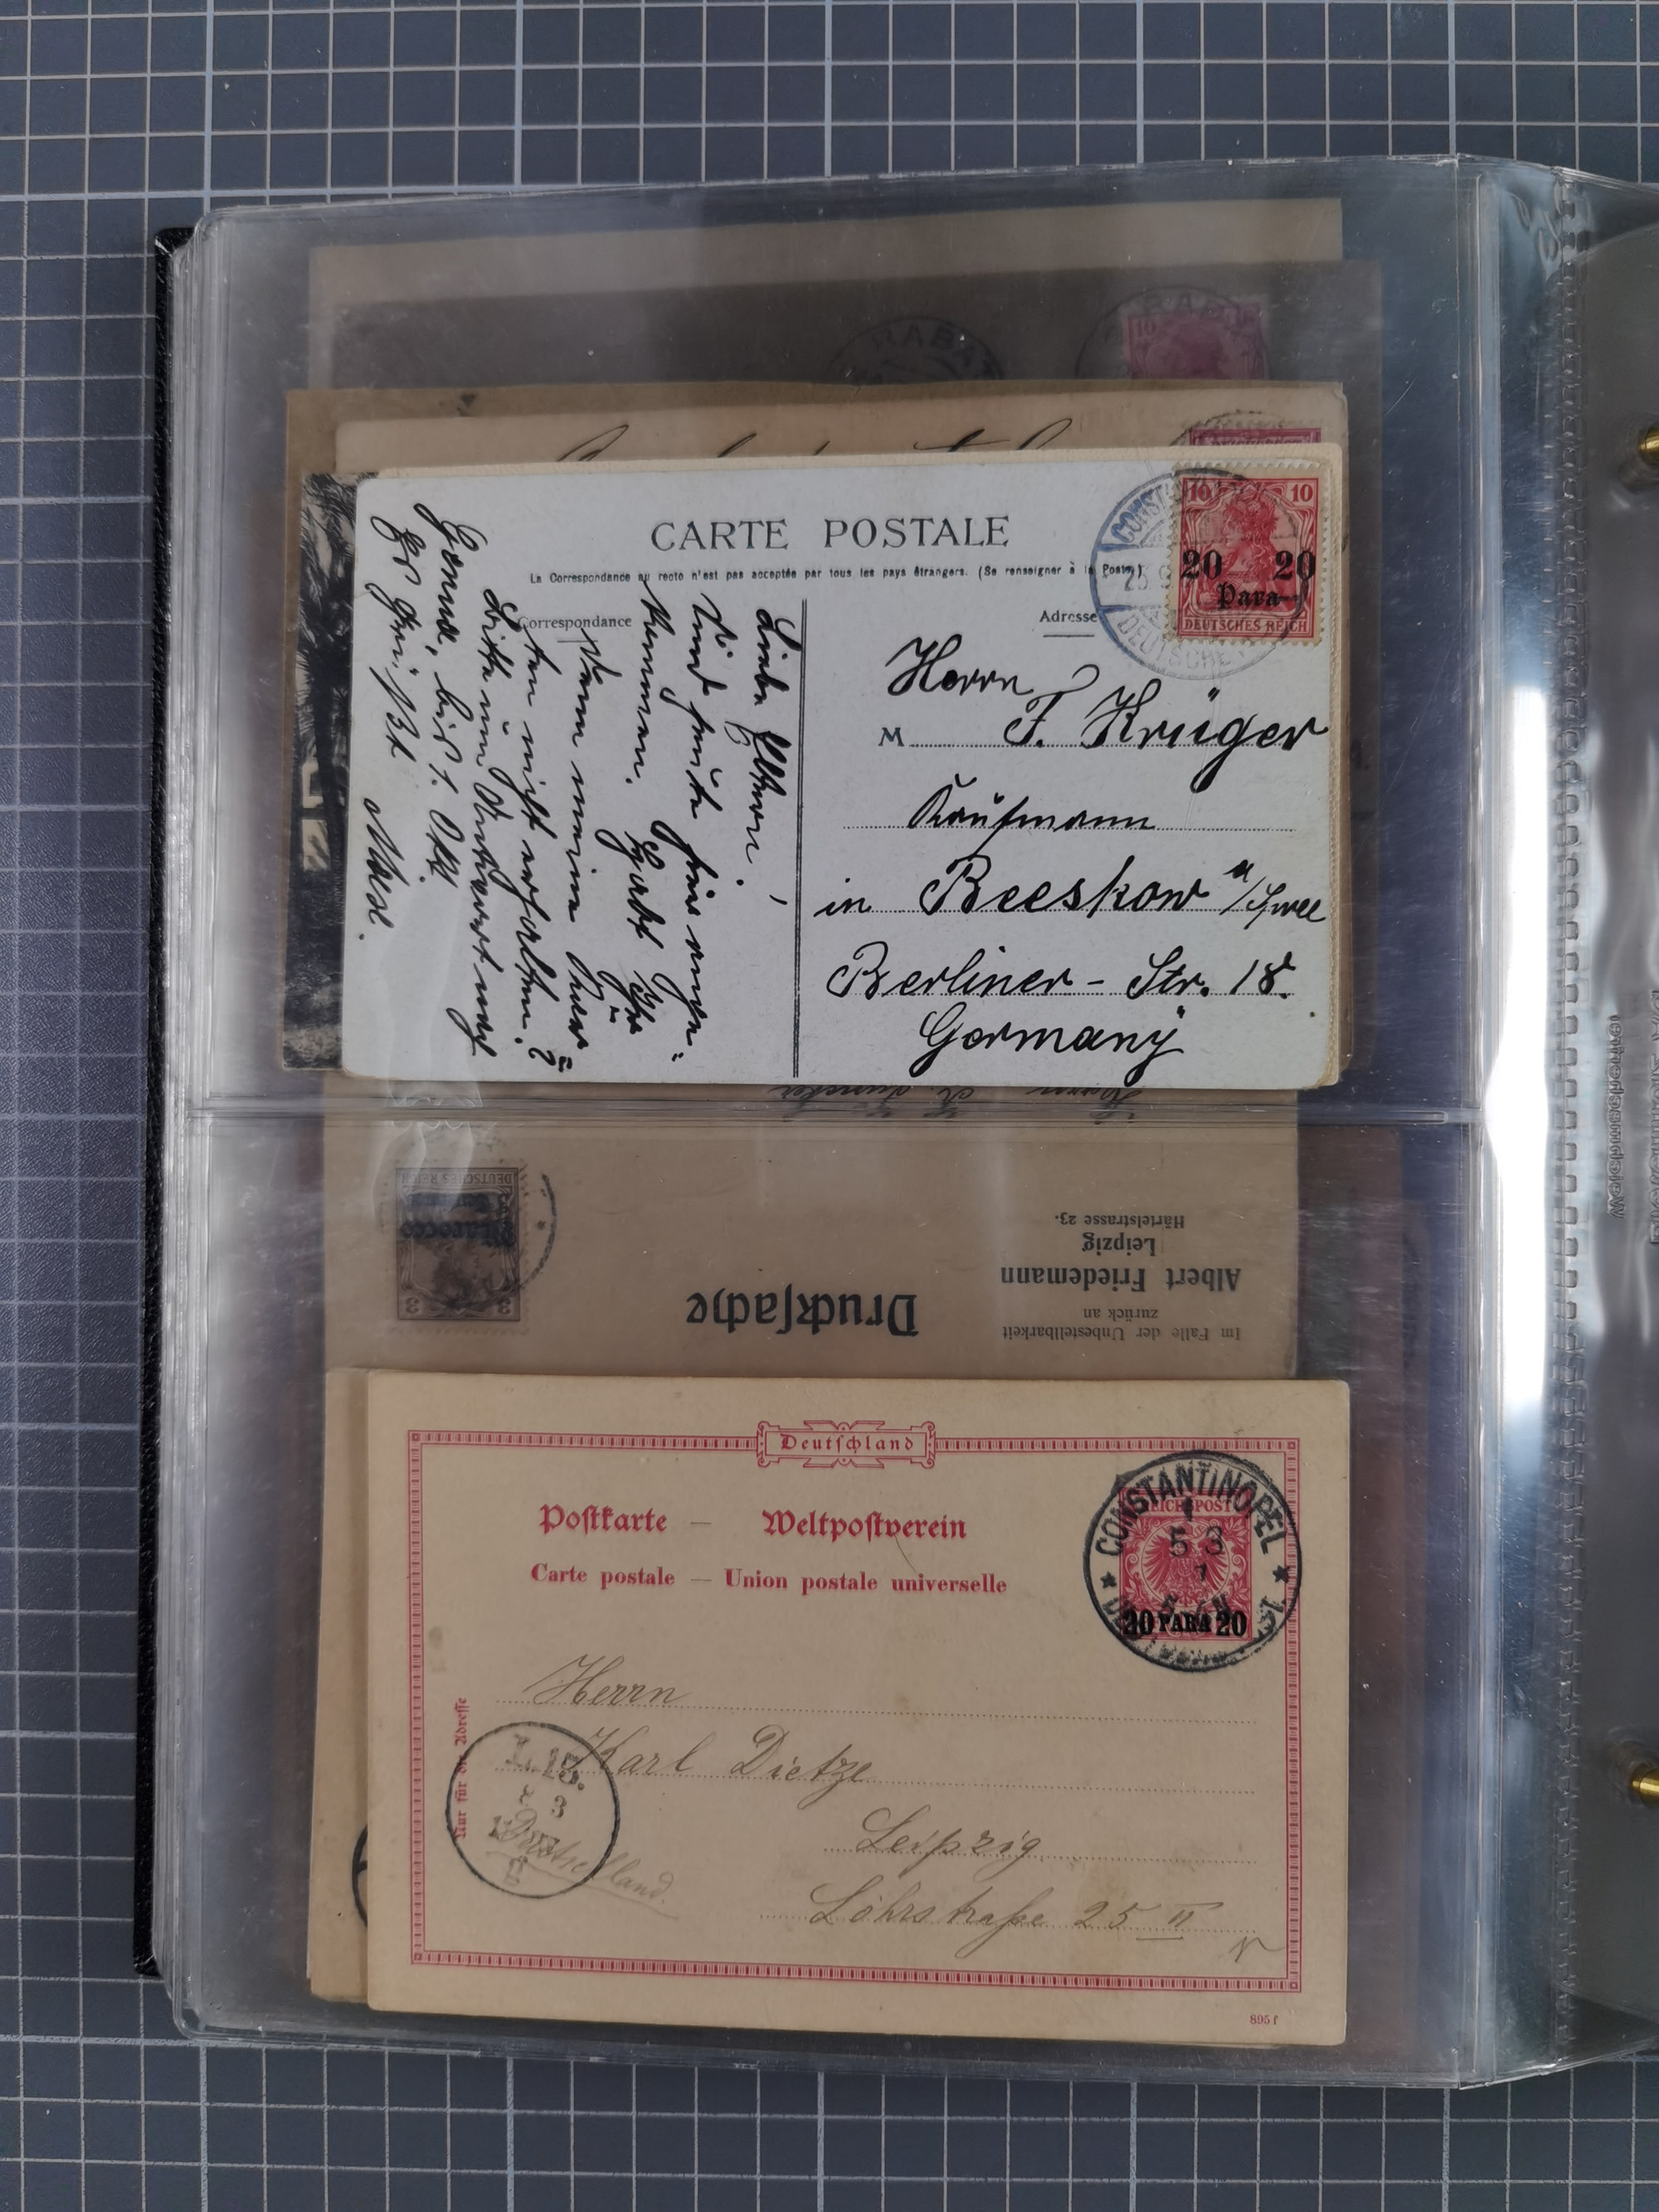 RABAT
10
CARTE POSTALE
La Correspondance au recto n'est pas acceptée par tous les pays étrangers. (Se renseigner à la Poste)
Correspondance
Adresse
10 10
20 20
Para
DEUTSCHES REICH
CONST
25
DEUTSCHE
Herrn
M F. Krüger
Kaufmann
in Beeskow a/Spree
Berliner - Str. 18.
Germany
Liebe Eltern!
Sind heute hier ange-
kommen. Habt Ihr
denn meine
ten nicht erhalten?
Bitte um Antwort nach
Genua, bis 1. Okt.
Max.
Herrn
DEUTSCHES REICH
Marocco
3 3
Drucksache
Im Falle der Unbestellbarkeit
zurück an
Albert Friedemann
Leipzig
Härtelstrasse 23.
Deutschland
Postkarte — Weltpostverein
Carte postale — Union postale universelle
REICHSPOST
CONSTANTINOPEL 1
5 3
20 PARA 20
Nur für die Adresse
Herrn
Karl Dietze
Leipzig
Löhrstraße 25 II
L. 13.
3
Deutschland.
895 f